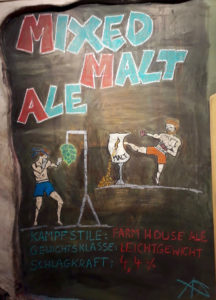 MIXED
MALT
ALE
MALT
KAMPFSTILE: FARM HOUSE ALE
GEWICHTSKLASSE: LEICHTGEWICHT
SCHLAGKRAFT: 4,4 %